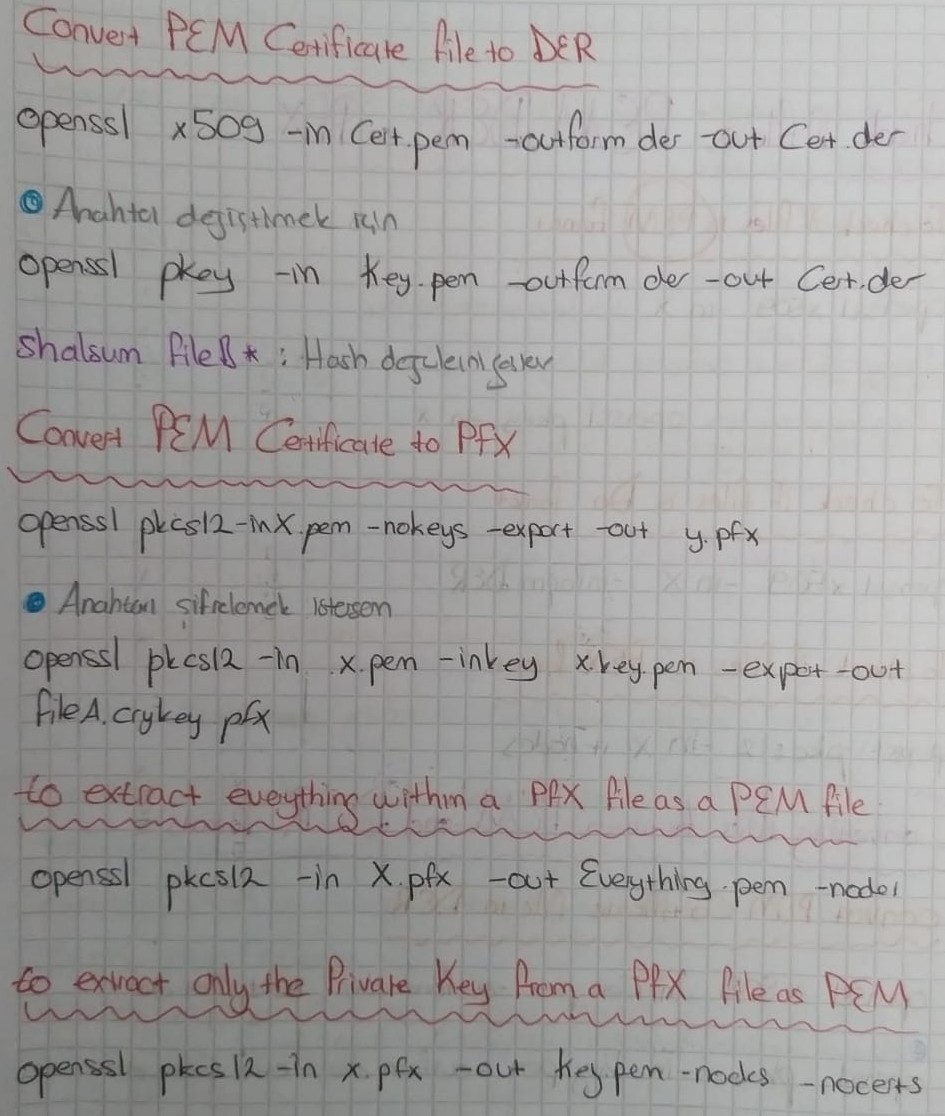 Convert PEM Certificate file to DER
openssl x509 -in Cert.pem -outform der -out Cert.der
Anahtar değiştirmek için
openssl pkey -in Key.pem -outform der -out Cert.der
sha1sum fileB* : Hash değerlerini
Convert PEM Certificate to PFX
openssl pkcs12 -in X.pem -nokeys -export -out y.pfx
Anahtarı şifrelemek istersem
openssl pkcs12 -in x.pem -inkey x.key.pem -export -out
fileA.crykey pfx
to extract everything within a PFX file as a PEM file
openssl pkcs12 -in X.pfx -out Everything.pem -nodes
to extract only the Private Key from a PFX file as PEM
openssl pkcs12 -in x.pfx -out key.pem -nodes -nocerts